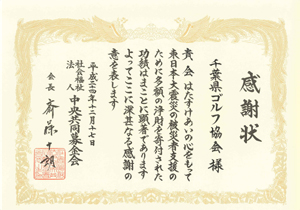 感謝状
千葉県ゴルフ協会 様
貴会はたすけあいの心をもって
東日本大震災への被災者支援の
ために多額の浄財を寄付された
功績はまことに顕著であります
よってここに深甚なる感謝の
意を表します
平成二十四年十二月十七日
社会福祉法人 中央共同募金会
会長 斎藤十朗